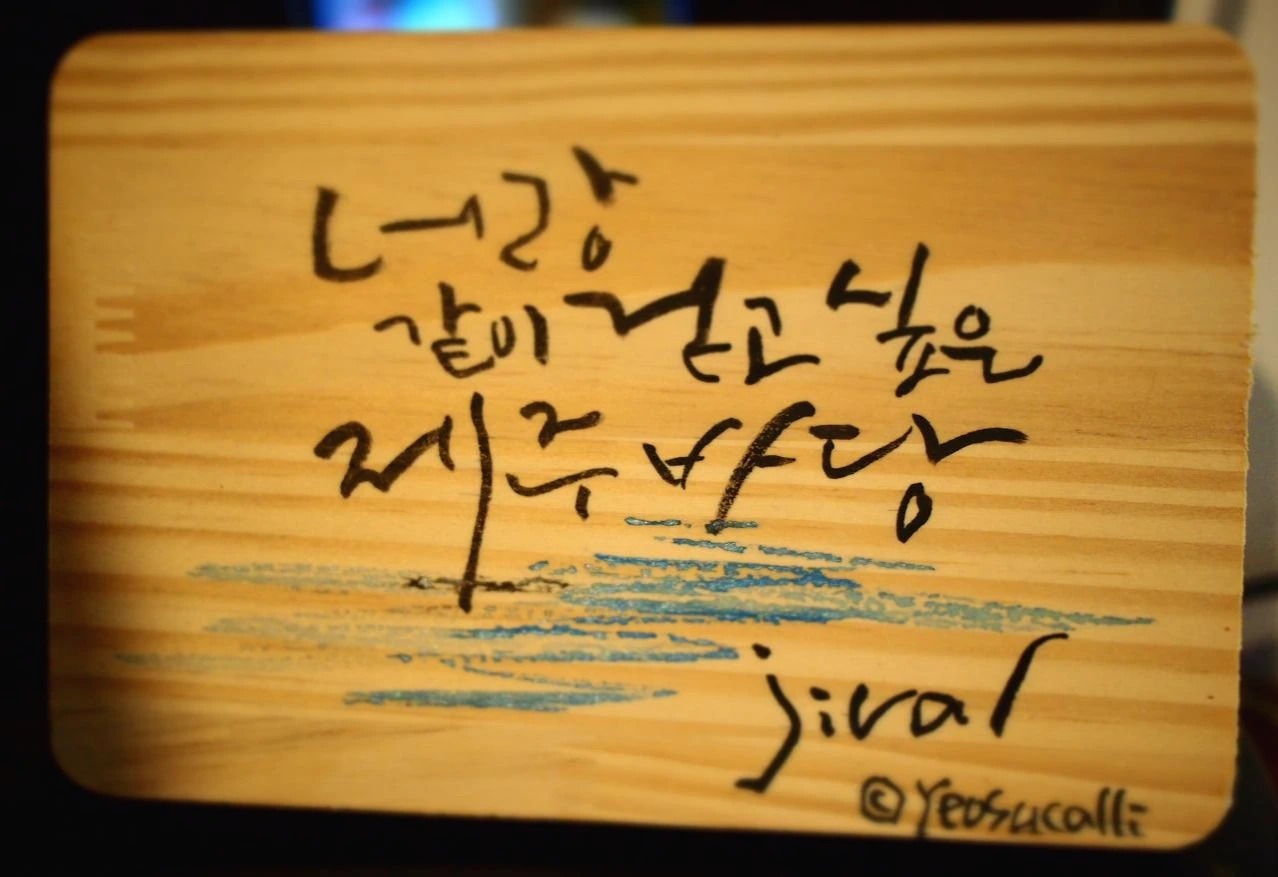 너랑
같이 걷고 싶은
제주바당
jival
©Yeosucalli